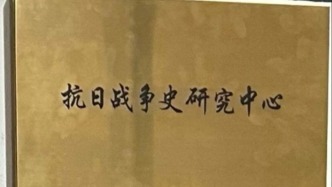 抗日战争史研究中心